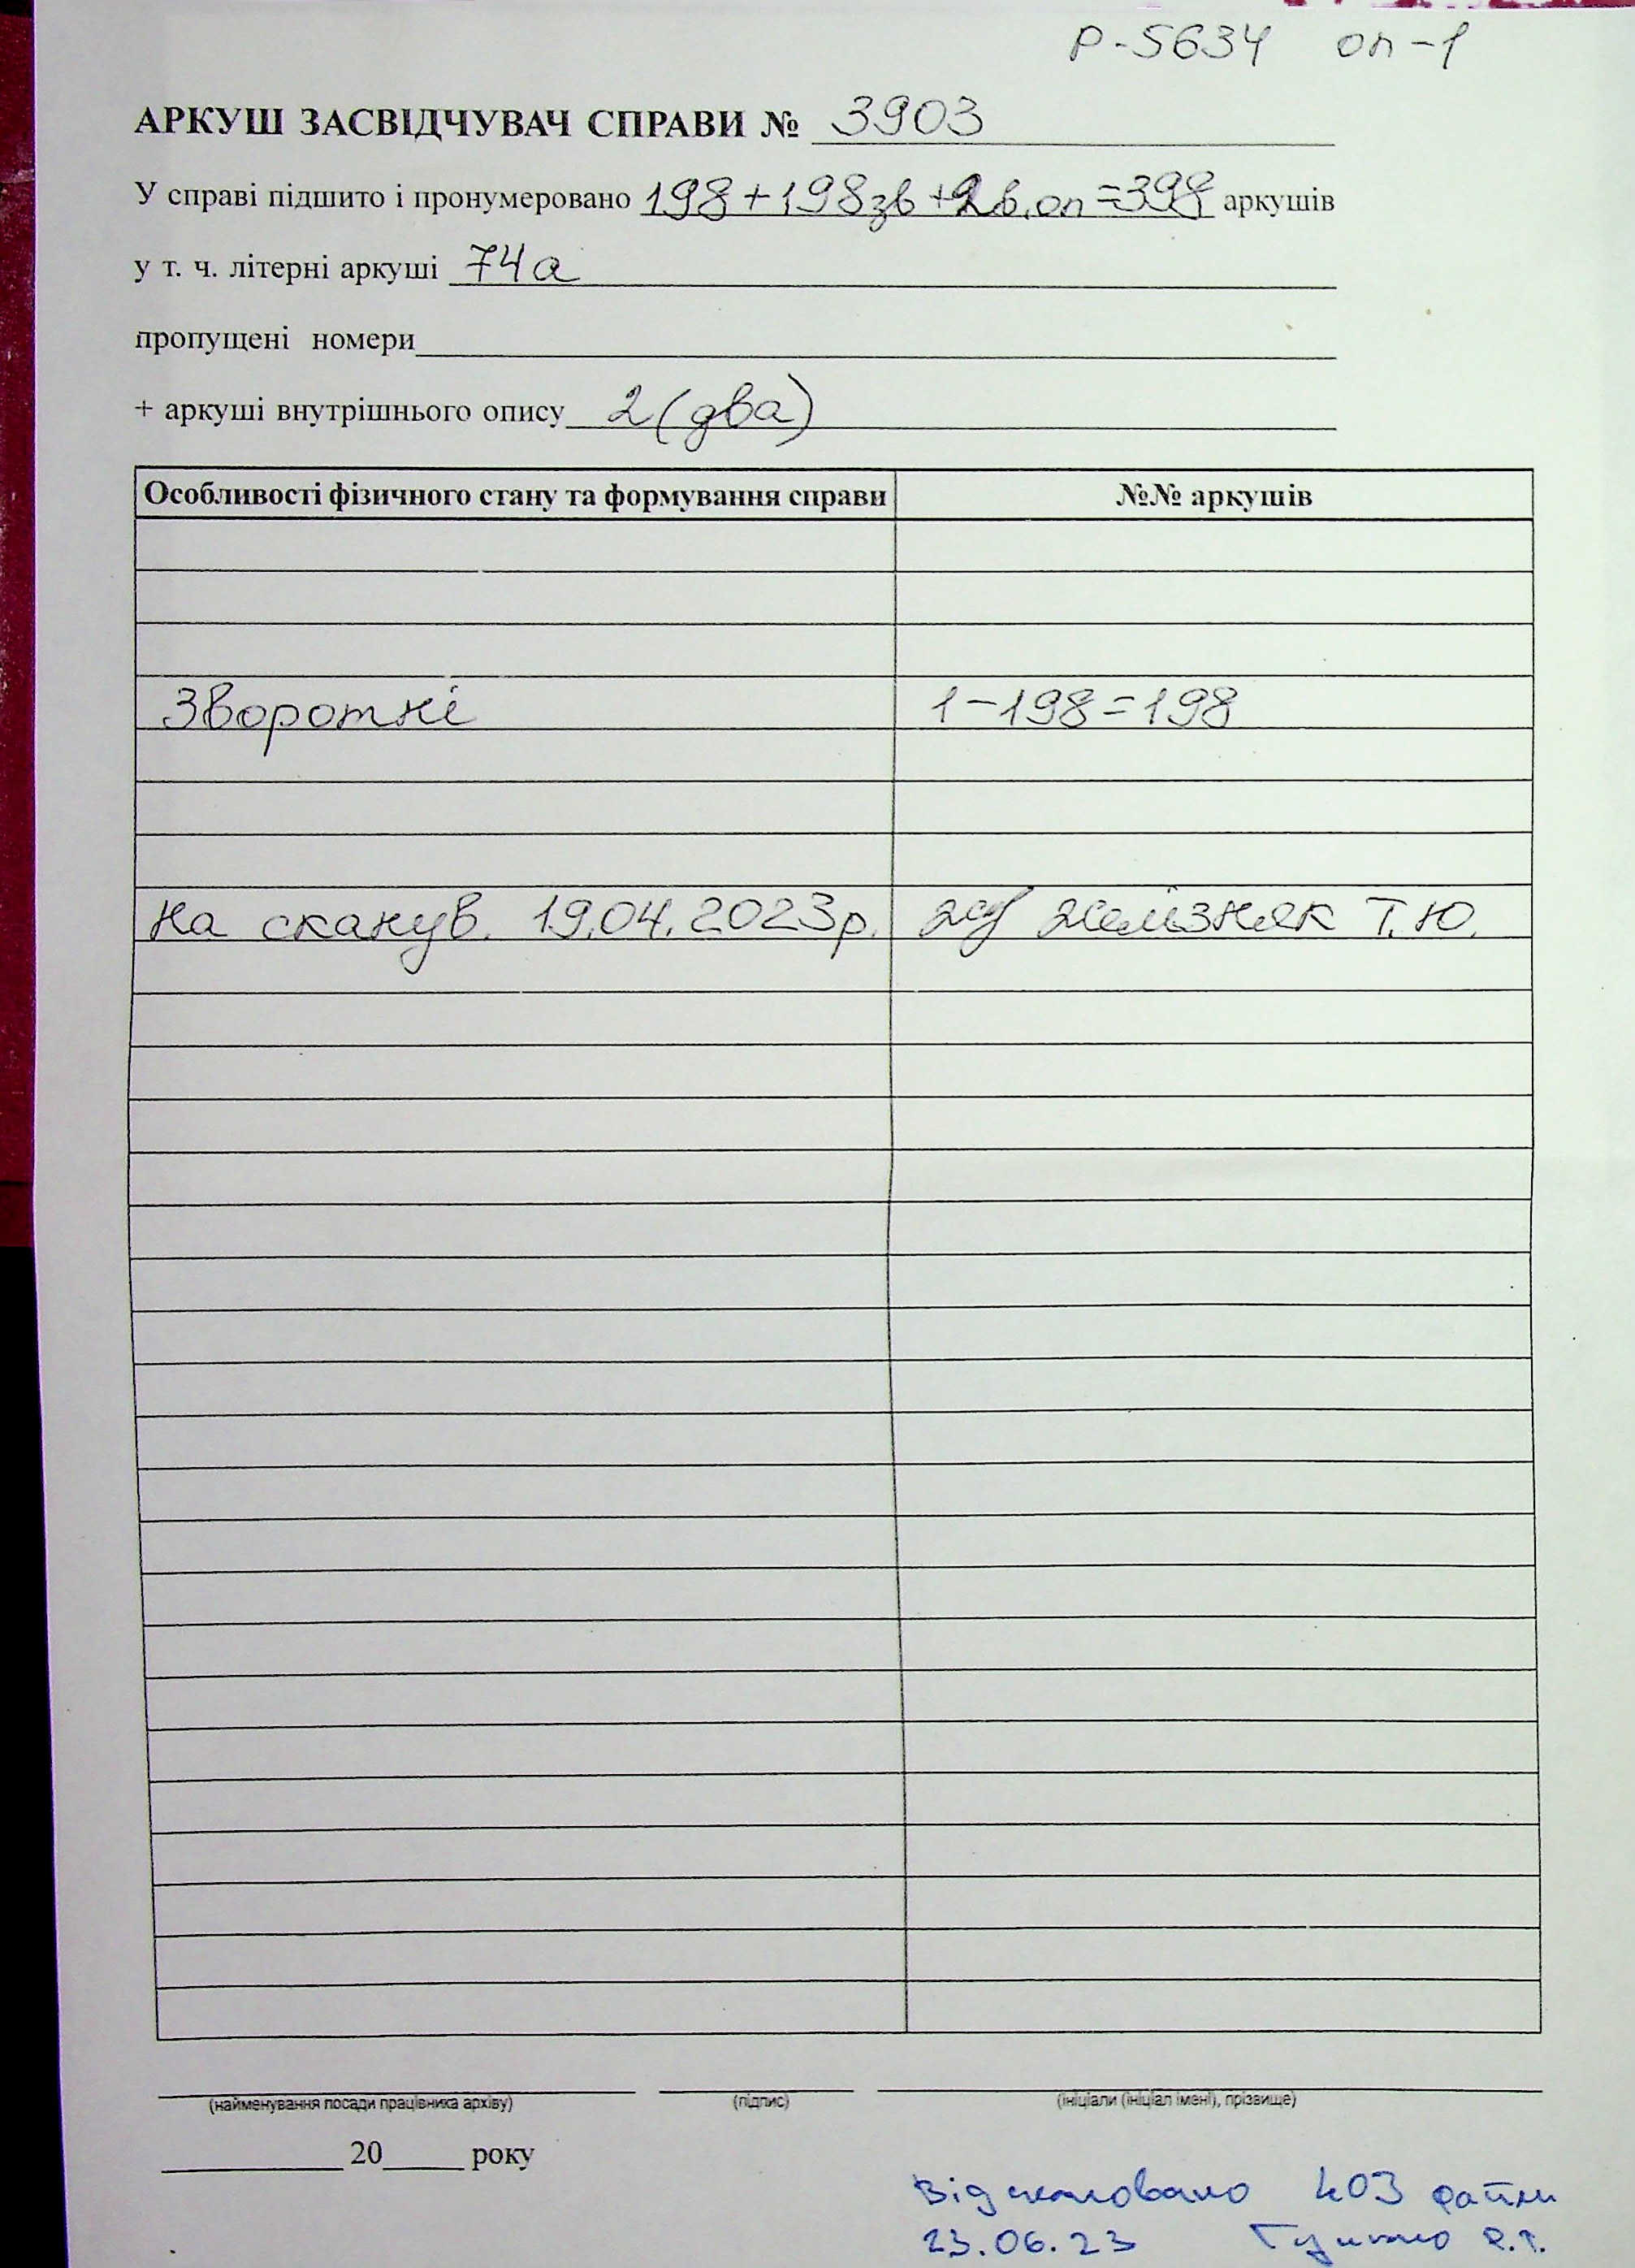 Р-5634 оп-1
АРКУШ ЗАСВІДЧУВАЧ СПРАВИ № 3903
У справі підшито і пронумеровано 198+198зв+2в.оп=398 аркушів
у т. ч. літерні аркуші 74а
пропущені номери
+ аркуші внутрішнього опису 2 (два)
Особливості фізичного стану та формування справи №№ аркушів
Зворотні 1-198=198
на сканув. 19.04.2023р. Желізняк Т.Ю.
(найменування посади працівника архіву) (підпис) (ініціали (ініціал імені), прізвище)
20 року
Відскановано 403 файли
23.06.23